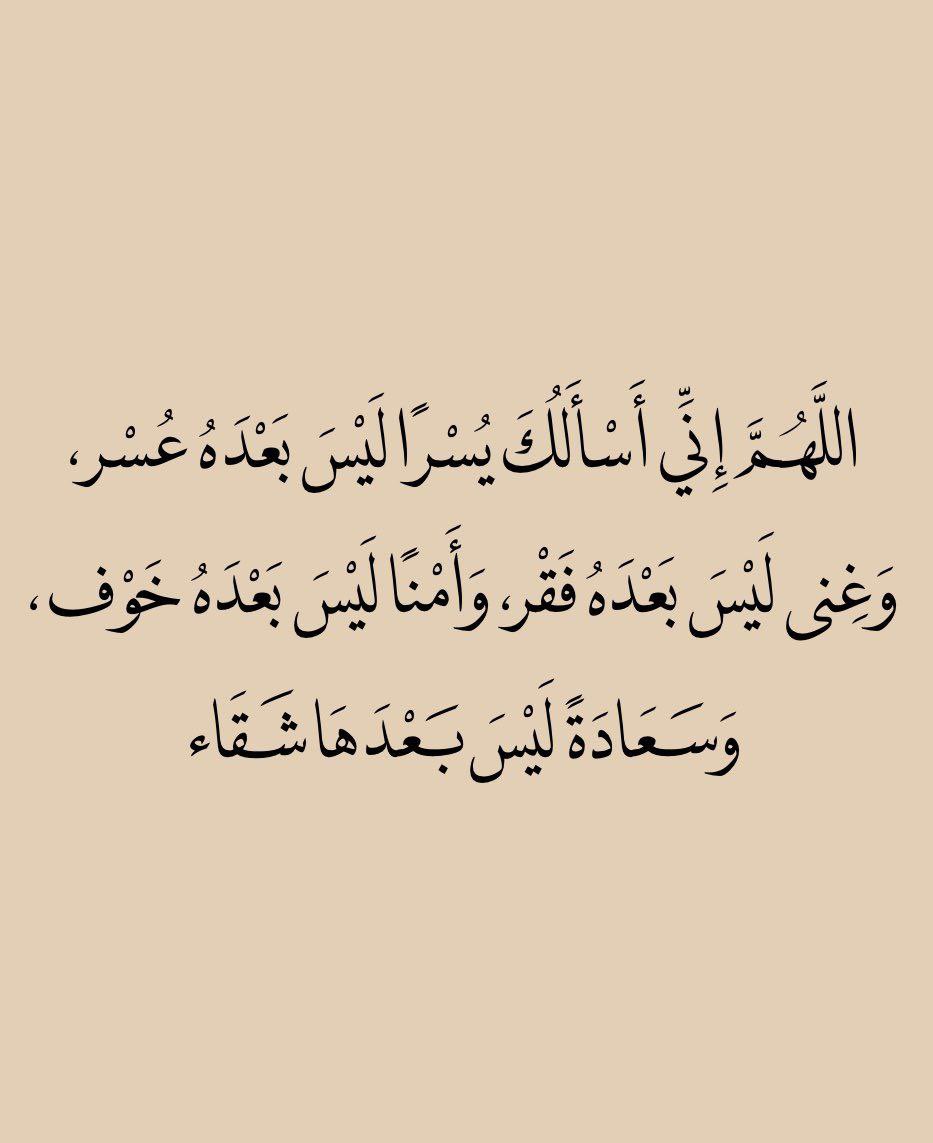 اللَّهُمَّ إِنِّي أَسْأَلُكَ يُسْرًا لَيْسَ بَعْدَهُ عُسْر،
وَغِنى لَيْسَ بَعْدَهُ فَقْر، وَأَمْنًا لَيْسَ بَعْدَهُ خَوْف،
وَسَعَادَةً لَيْسَ بَعْدَهَا شَقَاء